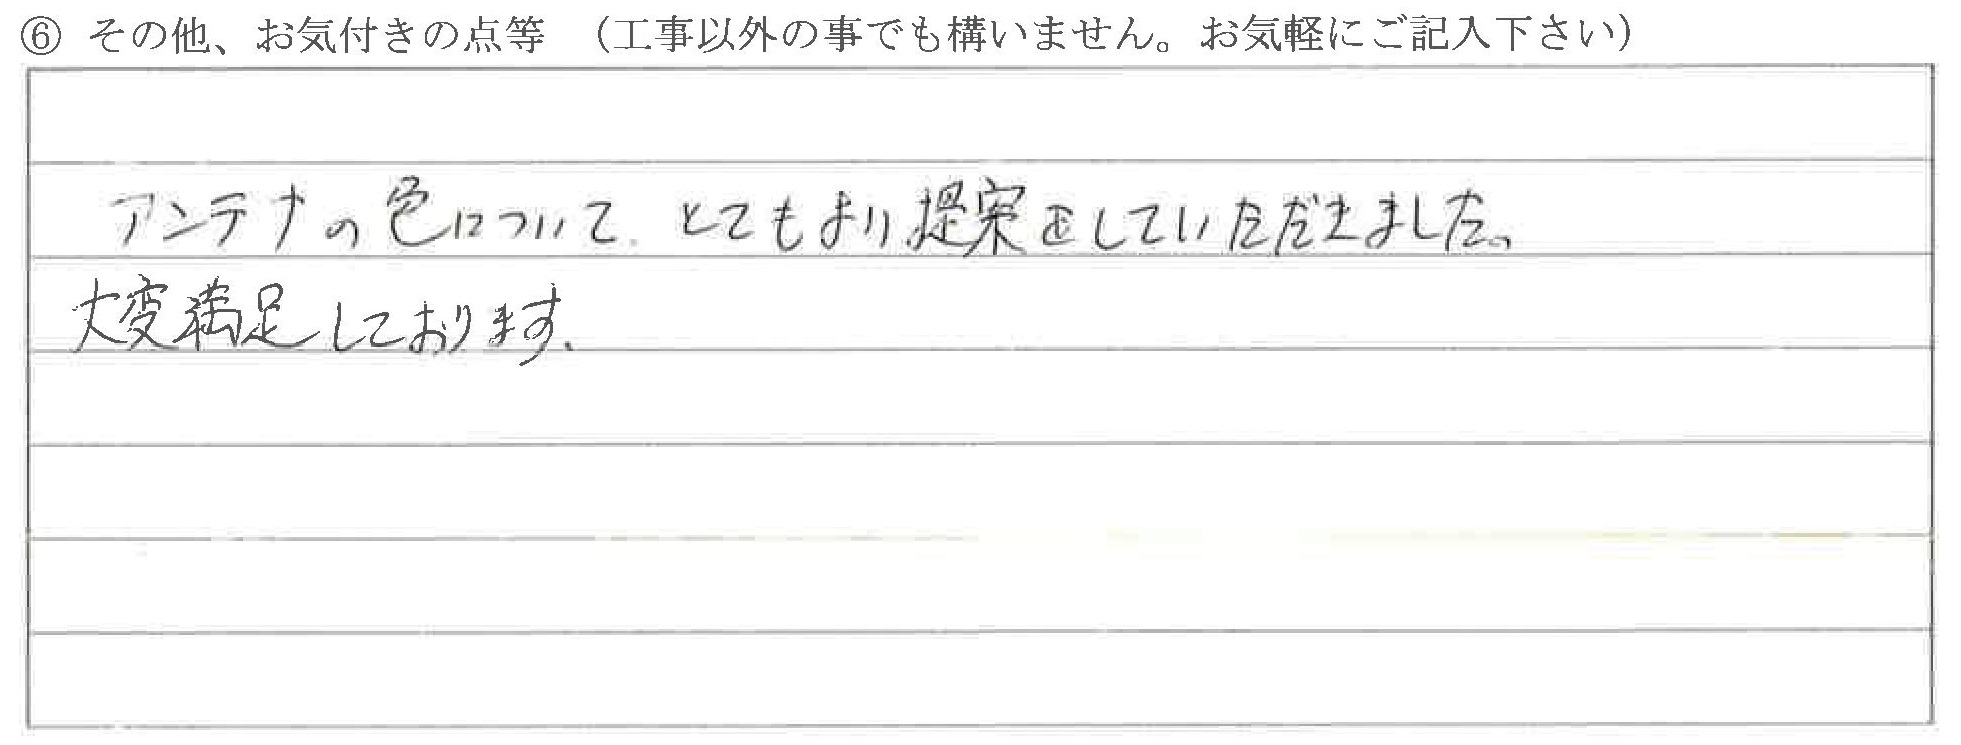 ⑥ その他、お気付きの点等 （工事以外の事でも構いません。お気軽にご記入下さい）
アンテナの色について、とてもよい提案をしていただきました。
大変満足しております。